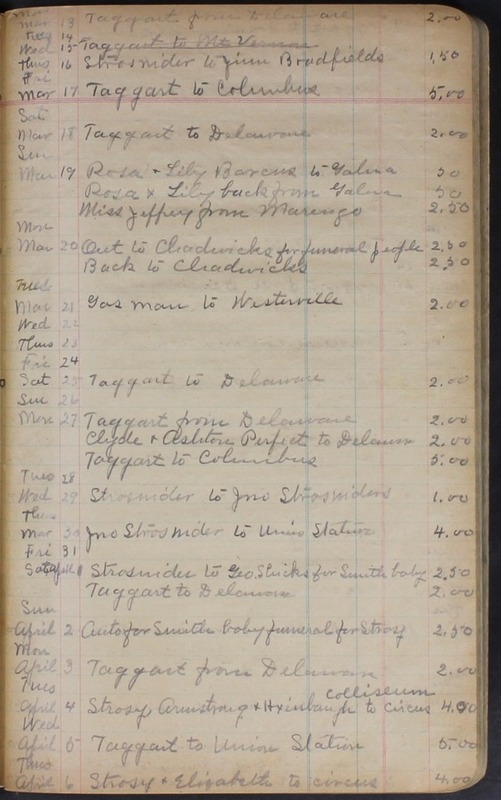 Mon
Mar 13 Taggart from Delaware 2.00
Tues 14
Wed 15 Taggart to Mt Vernon
Thus 16 Strosnider to Jinn Bradfields 1,50
Fri
Mar 17 Taggart to Columbus 5.00
Sat
Mar 18 Taggart to Delaware 2.00
Sun
Mar 19 Rosa + Lily Barcus to Galena 50
Rosa & Lily back from Galena 50
Miss Jeffrey from Marengo 2.50
Mon
Mar 20 Out to Chadwicks for funeral people 2,50
Back to Chadwicks 2,50
Tues
Mar 21 Gas man to Westerville 2.00
Wed 22
Thus 23
Fri 24
Sat 25 Taggart to Delaware 2.00
Sun 26
Mon 27 Taggart from Delaware 2.00
Clyde + Ashton Perfect to Delawar 2.00
Taggart to Columbus 5.00
Tues 28
Wed 29 Strosnider to Jno Strosniders 1.00
Thus
Mar 30 Jno Strosnider to Union Station 4.00
Fri 31
Sat April 1 Strosnider to Geo. Stricks for Smith baby 2.50
Taggart to Delaware 2.00
Sun
April 2 Auto for Smith baby funeral for Strosy 2.50
Mon
April 3 Taggart from Delaware 2.00
Tues colliseum
April 4 Strosy, Armstrong + to circus 4.00
Wed
April 5 Taggart to Union Station 5.00
Thus
April 6 Strosy + Elizabeth to circus 4.00